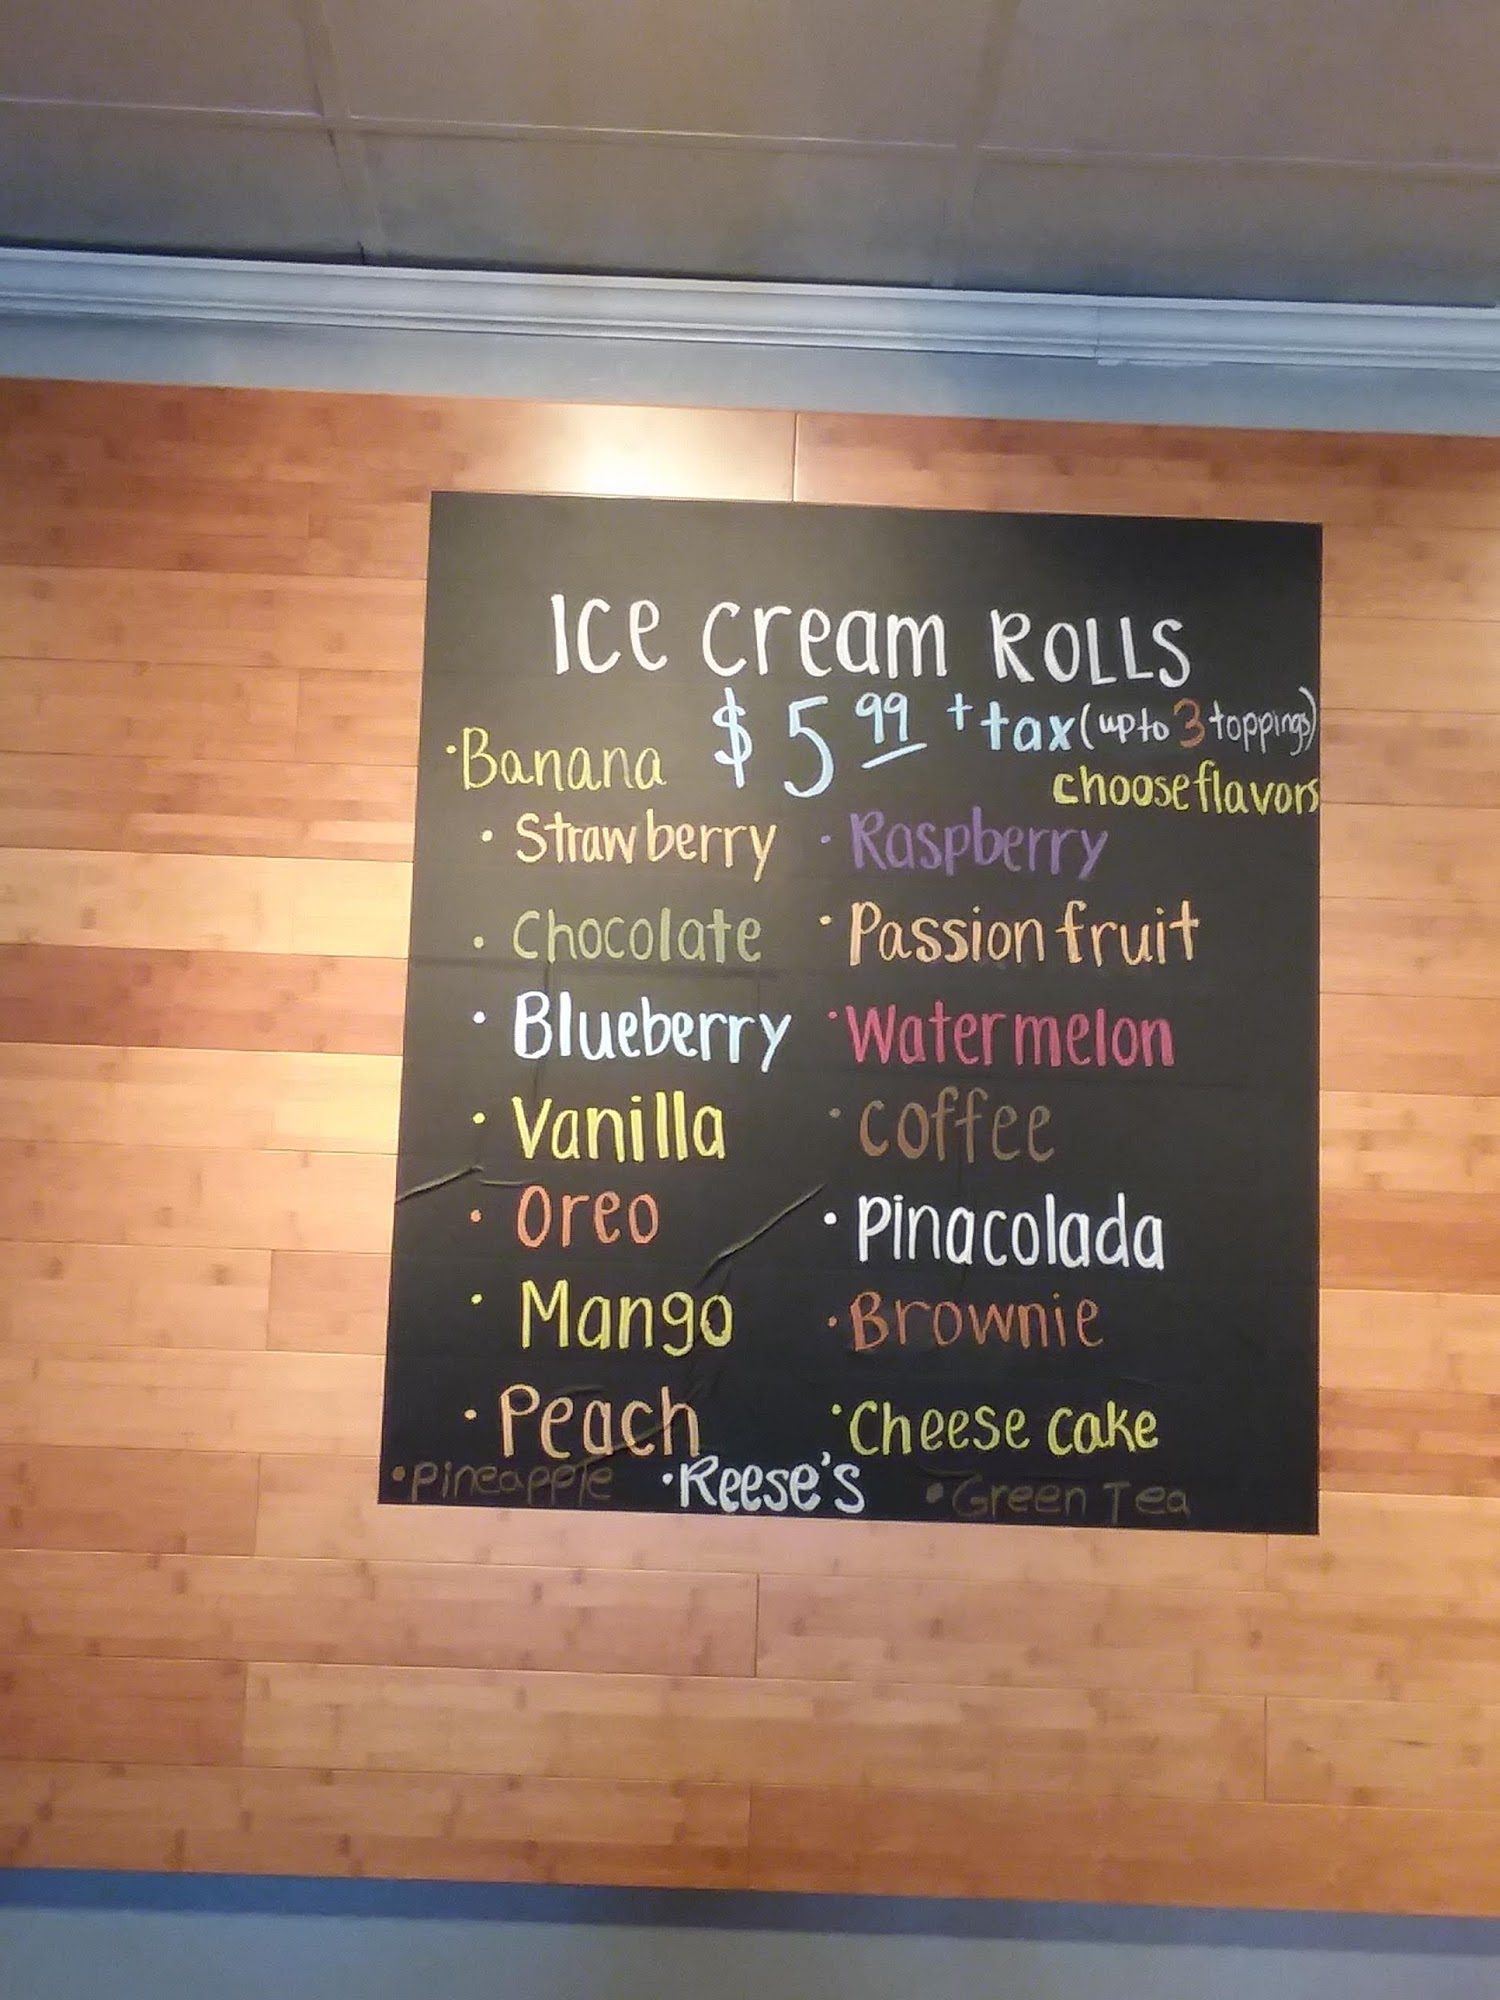 Ice cream ROLLS
$5.99 + tax (up to 3 toppings)
choose flavors
·Banana
· Strawberry · Raspberry
· Chocolate · Passion fruit
· Blueberry · Watermelon
· Vanilla · coffee
· Oreo · Pinacolada
· Mango · Brownie
· Peach · Cheese cake
· Pineapple · Reese's · Green Tea